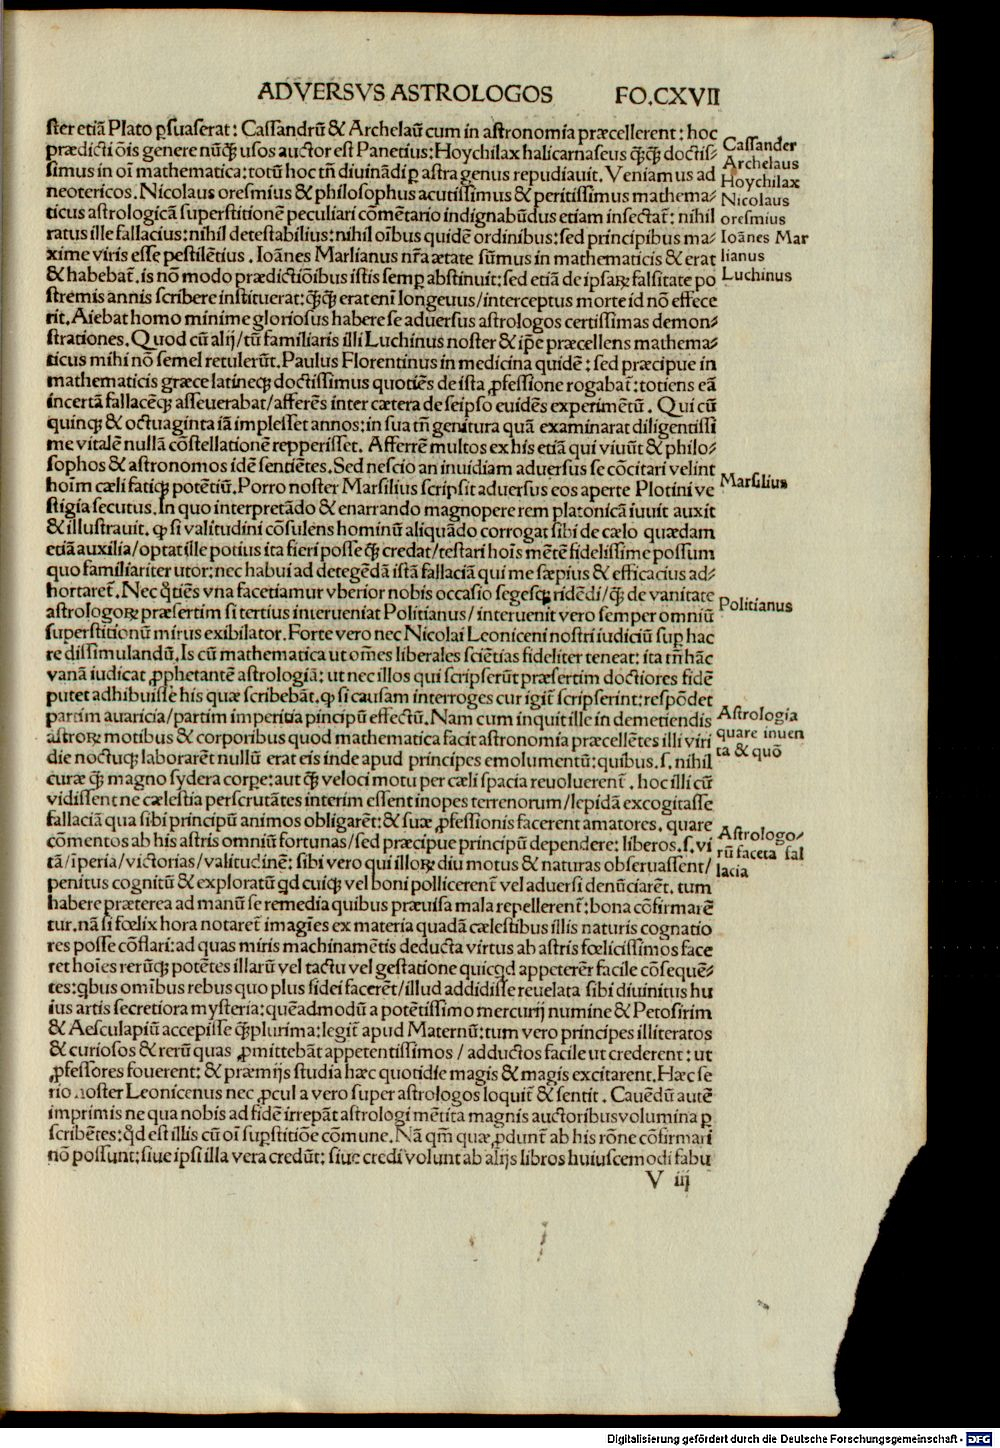 ADVERSVS ASTROLOGOS FO.CXVII
ster etiā Plato ꝑsuaserat: Cassandrū & Archelaū cum in astronomia præcellerent: hoc
prædictiōis genere nūꝗ̄ usos auctor est Panetius: Hoychilax halicarnaseus ꝗ̄ꝗ̄ doctis⸗
simus in oī mathematica: totū hoc tn̄ diuināđi ꝑ astra genus repudiauit. Veniamus ad
neotericos. Nicolaus oresmius & philosophus acutissimus & peritissimus mathema⸗
ticus astrologicā superstitionē peculiari cōmētario indignabūdus etiam insectat᷑: nihil
ratus ille fallacius: nihil detestabilius: nihil oībus quidē ordinibus: sed principibus ma⸗
xime viris esse pestilētius. Ioānes Marlianus nr̄a ætate sūmus in mathematicis & erat
& habebat᷑. is nō modo prædictiōibus istis semꝑ abstinuit: sed etiā de ipsaꝝ falsitate po
stremis annis scribere instituerat: ꝗ̄ꝗ̄ erat enī longeuus/ interceptus morte id nō effece
rit. Aiebat homo minime gloriosus habere se aduersus astrologos certissimas demon⸗
strationes. Quod cū alij/ tū familiaris illi Luchinus noster & ip̄e præcellens mathema⸗
ticus mihi nō semel retulerūt. Paulus Florentinus in medicina quidē: sed præcipue in
mathematicis græce latineqꝫ doctissimus quotiēs de ista ꝓfessione rogabat᷑: totiens eā
incertā fallacēqꝫ asseuerabat/ afferēs inter cætera de seipso euidēs experimētū. Qui cū
quinqꝫ & octuaginta iā implesset annos: in sua tn̄ genitura quā examinarat diligentissi
me vitalē nullā cōstellationē repperisset. Afferrē multos ex his etiā qui viuūt & philo⸗
sophos & astronomos idē sentiētes. Sed nescio an inuidiam aduersus se cōcitari velint
hoīm cæli fatiqꝫ potētiū. Porro noster Marsilius scripsit aduersus eos aperte Plotini ve
stigia secutus. In quo interpretādo & enarrando magnopere rem platonicā iuuit auxit
& illustrauit. ꝙ si valitudini cōsulens hominū aliquādo corrogat sibi de cælo quædam
etiā auxilia/ optat ille potius ita fieri posse ꝗ̄ credat/ testari hoīs mētē fidelissime possum
quo familiariter utor: nec habui ad detegēdā istā fallaciā qui me sæpius & efficacius ad⸗
hortaret᷑. Nec q̄tiēs vna facetiamur vberior nobis occasio segesqꝫ ridēdi/ ꝗ̄ de vanitate
astrologoꝝ præsertim si tertius interueniat Politianus/ interuenit vero semper omniū
superstitionū mirus exibilator. Forte vero nec Nicolai Leoniceni nostri iudiciū suꝑ hac
re dissimulandū. Is cū mathematica ut om̄es liberales sciētias fideliter teneat: ita tn̄ hāc
vanā iudicat ꝓphetantē astrologiā: ut nec illos qui scripserūt præsertim doctiores fidē
putet adhibuisse his quæ scribebāt. ꝙ si causam interroges cur igit᷑ scripserint: respōdet
partim auaricia/ partim imperitia pincipū effectū. Nam cum inquit ille in demetiendis
astroꝝ motibus & corporibus quod mathematica facit astronomia præcellētes illi viri
die noctuqꝫ laborarēt nullū erat eis inde apud principes emolumentū: quibus .s. nihil
curæ ꝗ̄ magno sydera corpe: aut ꝗ̄ veloci motu per cæli spacia reuoluerent᷑. hoc illi cū
vidissent ne cælestia perscrutātes interim essent inopes terrenorum/ lepidā excogitasse
fallaciā qua sibi principū animos obligarēt: & suæ ꝓfessionis facerent amatores. quare
cōmentos ab his astris omniū fortunas/ sed præcipue principū dependere: liberos .s. vi
tā/ īperia/ victorias/ valitudinē: sibi vero qui illoꝝ diu motus & naturas obseruassent/
penitus cognitū & exploratū qd cuiqꝫ vel boni pollicerent᷑ vel aduersi denūciarēt. tum
habere præterea ad manū se remedia quibus præuisa mala repellerent᷑: bona cōfirmarē
tur. nā si fœlix hora notaret᷑ imagīes ex materia quadā cælestibus illis naturis cognatio
res posse cōflari: ad quas miris machinamētis deducta virtus ab astris fœlicissimos face
ret hoīes rerūqꝫ potētes illarū vel tactu vel gestatione quicqd appeterēr facile cōsequē⸗
tes: qbus omībus rebus quo plus fidei facerēt/ illud addidisse reuelata sibi diuinitus hu
ius artis secretiora mysteria: quēadmodū a potētissimo mercurij numine & Petosirim
& Aesculapiū accepisse ꝗ̄plurima: legit᷑ apud Maternū: tum vero principes illiteratos
& curiosos & rerū quas ꝓmittebāt appetentissimos / adductos facile ut crederent: ut
ꝓfessores fouerent: & præmijs studia hæc quotidie magis & magis excitarent. Hæc se
rio noster Leonicenus nec ꝓcul a vero super astrologos loquit᷑ & sentit. Cauēdū autē
imprimis ne qua nobis ad fidē irrepāt astrologi mētita magnis auctoribus volumina ꝑ
scribētes: qd est illis cū oī suꝑstitiōe cōmune. Nā qm̄ quæ ꝓdunt᷑ ab his rōne cōfirmari
nō possunt: siue ipsi illa vera credūt: siue credi volunt ab alijs libros huiuscemodi fabu
V iij
Cassander
Archelaus
Hoychilax
Nicolaus
oresmius
Ioānes Mar
lianus
Luchinus
Marsilius
Politianus
Astrologia
quare inuen
ta & quō
Astrologo⸗
rū faceta fal
lacia
Digitalisierung gefördert durch die Deutsche Forschungsgemeinschaft - DFG